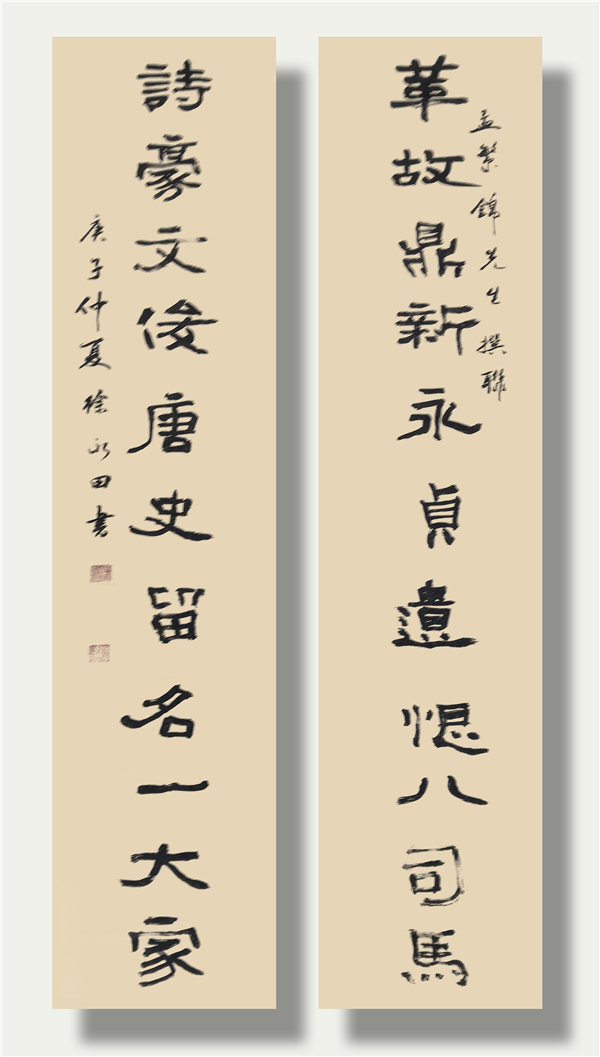 孟繁錦先生撰聯
革故鼎新永貞遺恨八司馬
詩豪文俊唐史留名一大家
庚子仲夏徐永田書